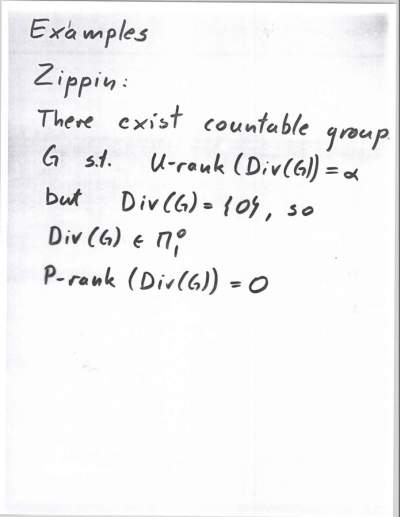 Examples
Zippin:
There exist countable group
G s.t. U-rank (Div(G)) = α
but Div(G) = {0}, so
Div(G) ∈ Π⁰₁
P-rank (Div(G)) = 0